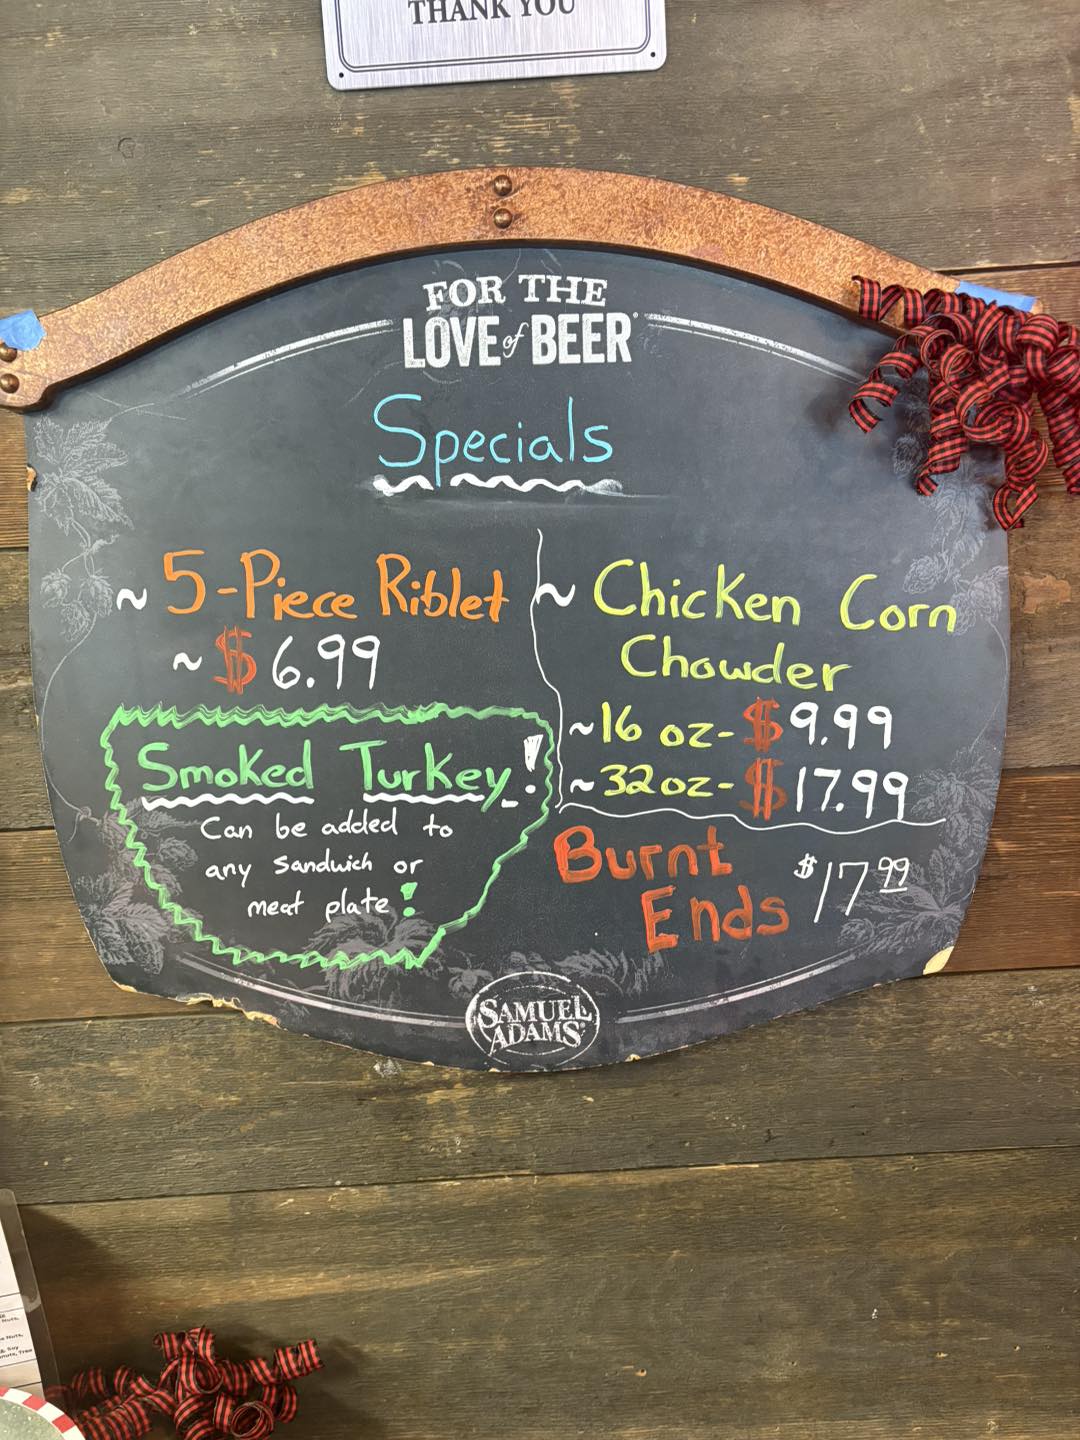 THANK YOU
FOR THE
LOVE of BEER®
Specials
~ 5-Piece Riblet
~ $6.99
Smoked Turkey!
Can be added to
any sandwich or
meat plate!
~ Chicken Corn
Chowder
~16 oz- $9.99
~32oz- $17.99
Burnt
Ends $17.99
SAMUEL
ADAMS®